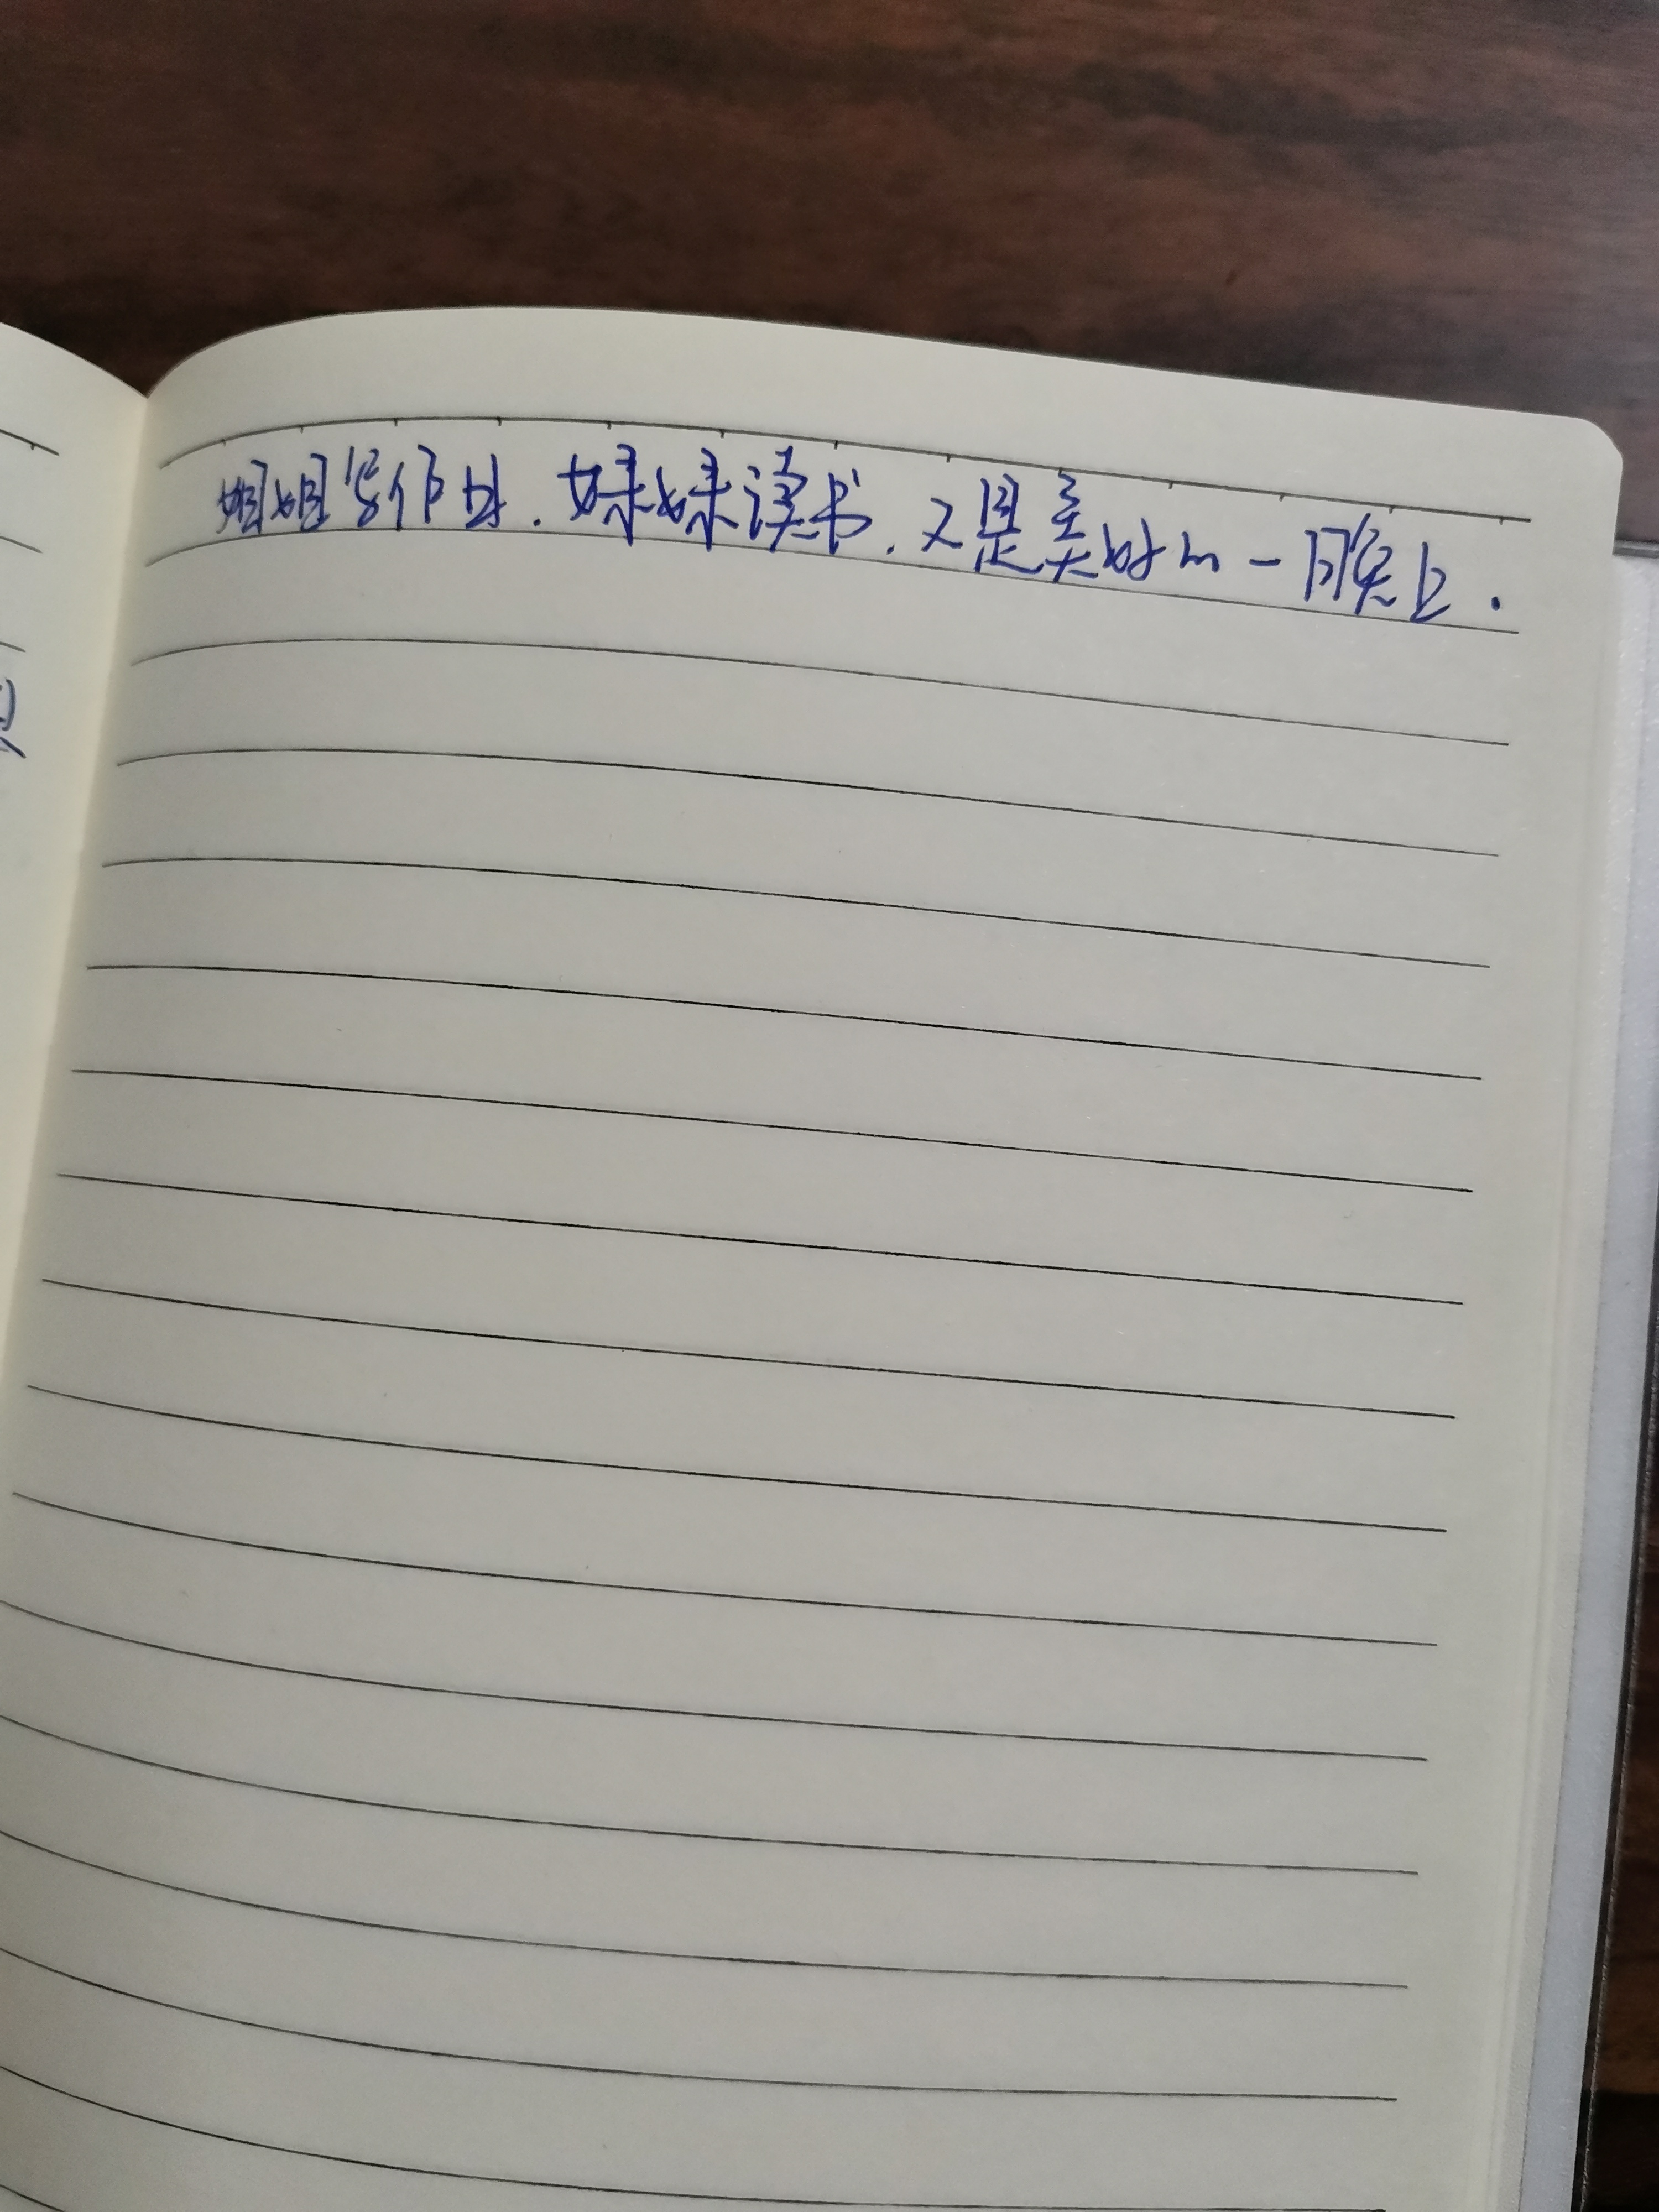 姐姐写作业.妹妹读书.又是美好的一晚上.